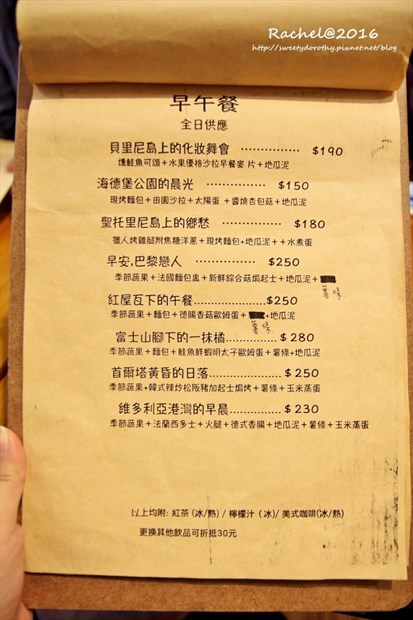 Rachel@2016
http://sweetydorothy.pixnet.net/blog
早午餐
全日供應
貝里尼島上的化妝舞會 ............... $190
燻鮭魚可頌+水果優格沙拉早餐麥片+地瓜泥
海德堡公園的晨光 ............... $150
現烤麵包+田園沙拉+太陽蛋+醬燒杏包菇+地瓜泥
聖托里尼島上的鄉愁 ............... $180
獵人烤雞腿附焦糖洋蔥+現烤麵包+地瓜泥++水煮蛋
早安,巴黎戀人 ............... $250
季節蔬果+法國麵包盅+新鮮綜合菇焗起士+地瓜泥+
薯條
紅屋瓦下的午餐..................$250
季節蔬果+麵包+德腸香菇歐姆蛋+ +地瓜泥
薯條
富士山腳下的一抹橘............... $280
季節蔬果+麵包+鮭魚鮮蝦明太子歐姆蛋+薯條+地瓜泥
首爾塔黃昏的日落............... $250
季節蔬果+韓式辣炒松阪豬加起士焗烤+薯條+玉米蒸蛋
維多利亞港灣的早晨............... $230
季節蔬果+法蘭西多士+火腿+德式香腸+地瓜泥+薯條+玉米蒸蛋
以上均附: 紅茶 (冰/熱) / 檸檬汁 (冰)/ 美式咖啡(冰/熱)
更換其他飲品可折抵30元